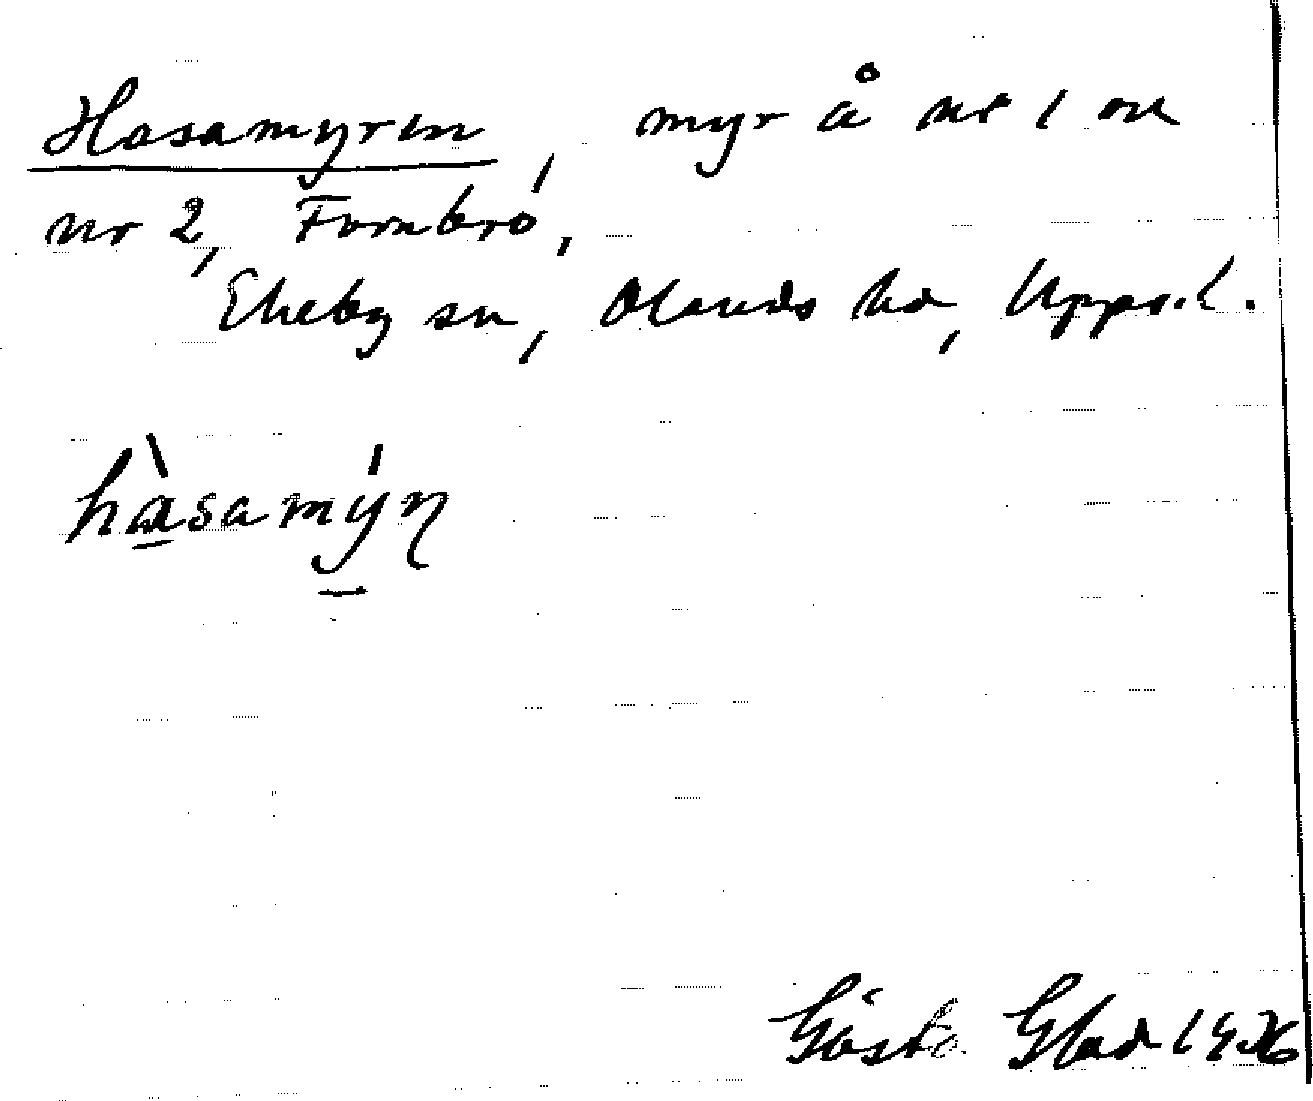 Hasamyren, myr å nr 1 och
nr 2, Fornbro,
Ekeby sn, Olands hd, Uppl.
hàsamýn
Gösta Glad 1936